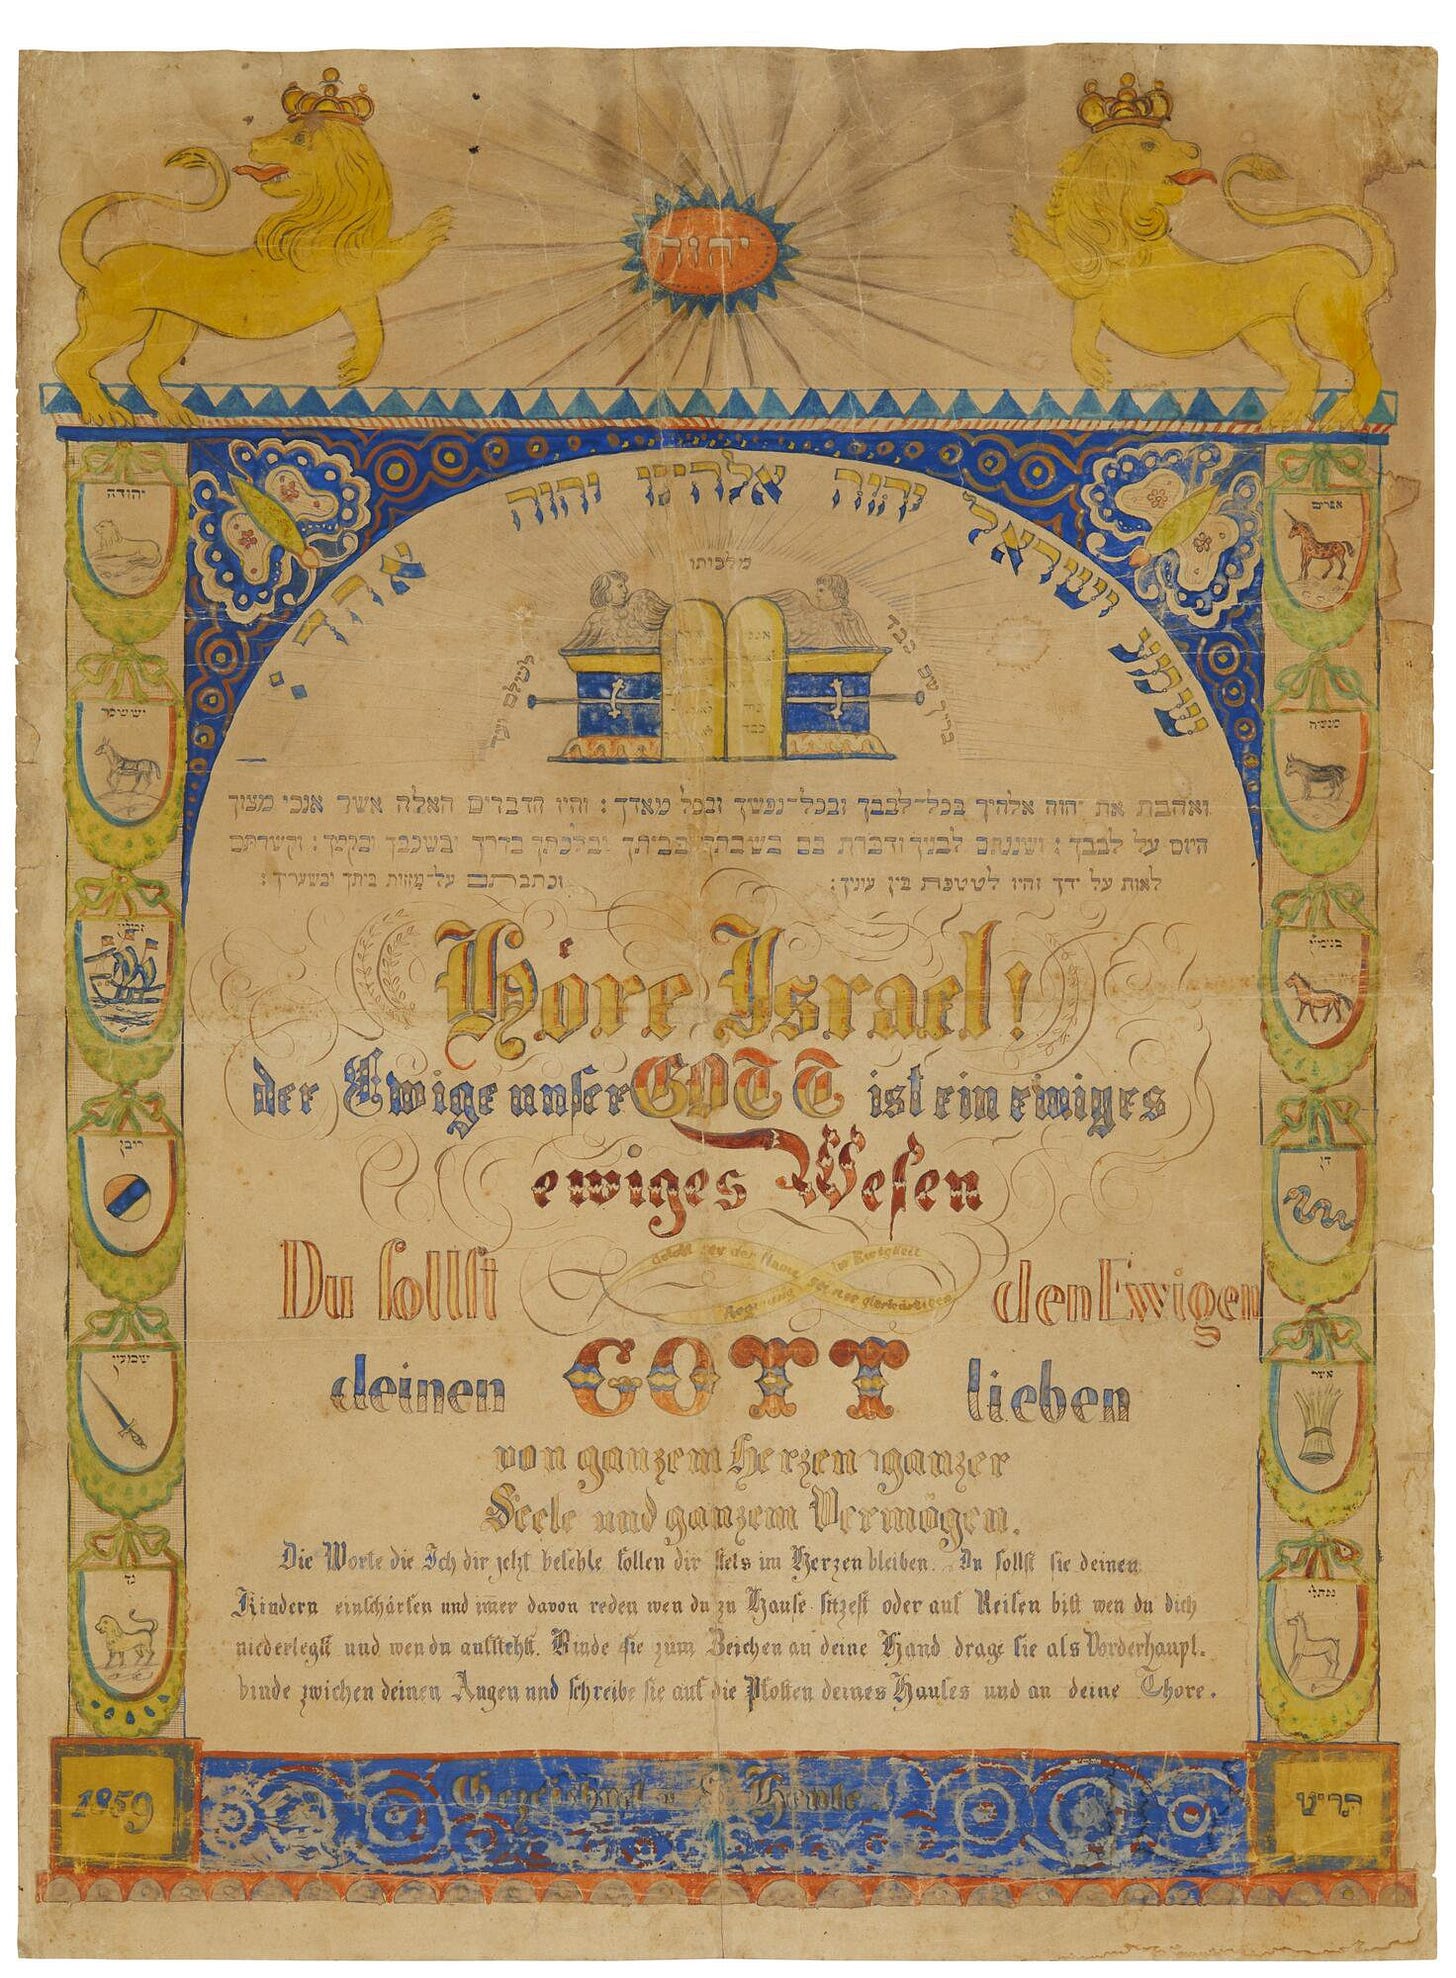 יהוה
שמע ישראל יהוה אלהינו יהוה אחד:
ברוך שם כבד
מלכיתו
לעולם ועד
יהודה
יששכר
זבולון
ריבן
שמעון
גד
אפרים
מנשה
בנימין
דן
אשר
נפתלי
ואהבת את יהוה אלהיך בכל-לבבך ובכל-נפשך ובכל מאדך: והיו הדברים האלה אשר אנכי מצוך
היום על לבבך: ושננתם לבניך ודברת בם בשבתך בביתך ובלכתך בדרך ובשכבך ובקמך: וקשרתם
לאות על ידך והיו לטטפת בין עיניך: וכתבתם על-מזוות ביתך ובשעריך:
Höre Israel!
der Ewige unser GOTT ist ein einiges
ewiges Wesen
Du sollst den Ewigen
Gelobt sey der Name der Ewigkeit
Regierung
deinen GOTT lieben
von ganzem Herzen ganzer
Seele und ganzem Vermögen.
Die Worte die Ich dir jetzt befehle sollen dir stets im Herzen bleiben. Du sollst sie deinen
Kindern einschärfen und imer davon reden wen du zu Hause sitzest oder auf Reisen bist wen du dich
niederlegst und wen du aufstehst. Binde sie zum Zeichen an deine Hand drage sie als Vorderhaupt.
binde zwichen deinen Augen und schreibe sie auf die Pfosten deines Hauses und an deine Thore.
1859
תריט